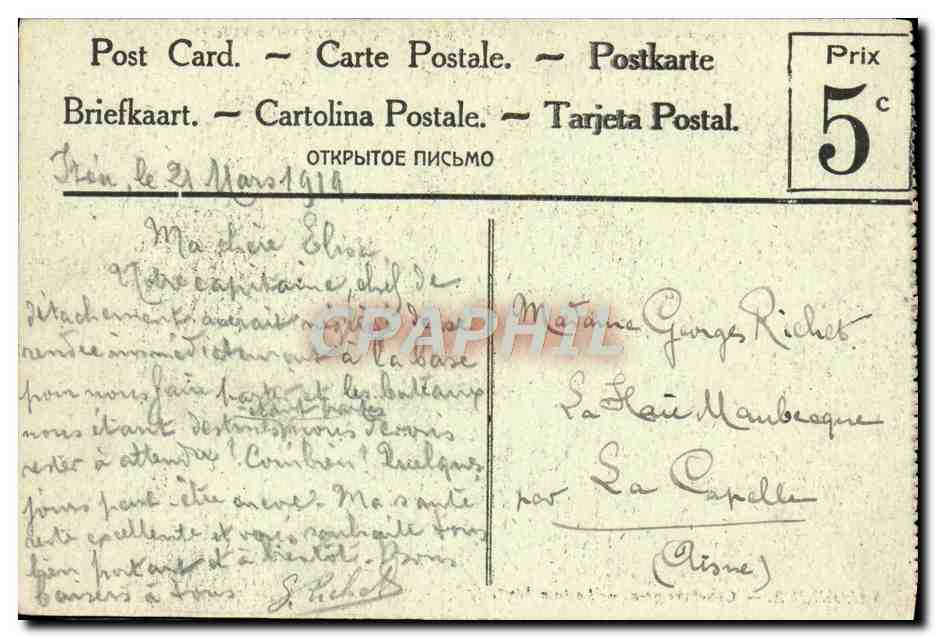 Post Card. ~ Carte Postale. ~ Postkarte
Briefkaart. ~ Cartolina Postale. ~ Tarjeta Postal.
ОТКРЫТОЕ ПИСЬМО
Prix
5 c
le 21 Mars 1919
Ma chère Elisa,
Notre capitaine, chef de
détachement, aurait de se
rendre immédiatement à la base
pour nous faire partir et les bateaux
étant partis
nous étant destinés, nous devons
rester à attendre! Combien? Quelques
jours peut-être encore. Ma santé
reste excellente et vous souhaite tous
bien portant et à bientôt. Bons
baisers à tous G. Richet
Madame Georges Richet
La Haie Maubecque
par La Capelle
(Aisne)
CPAPHIL